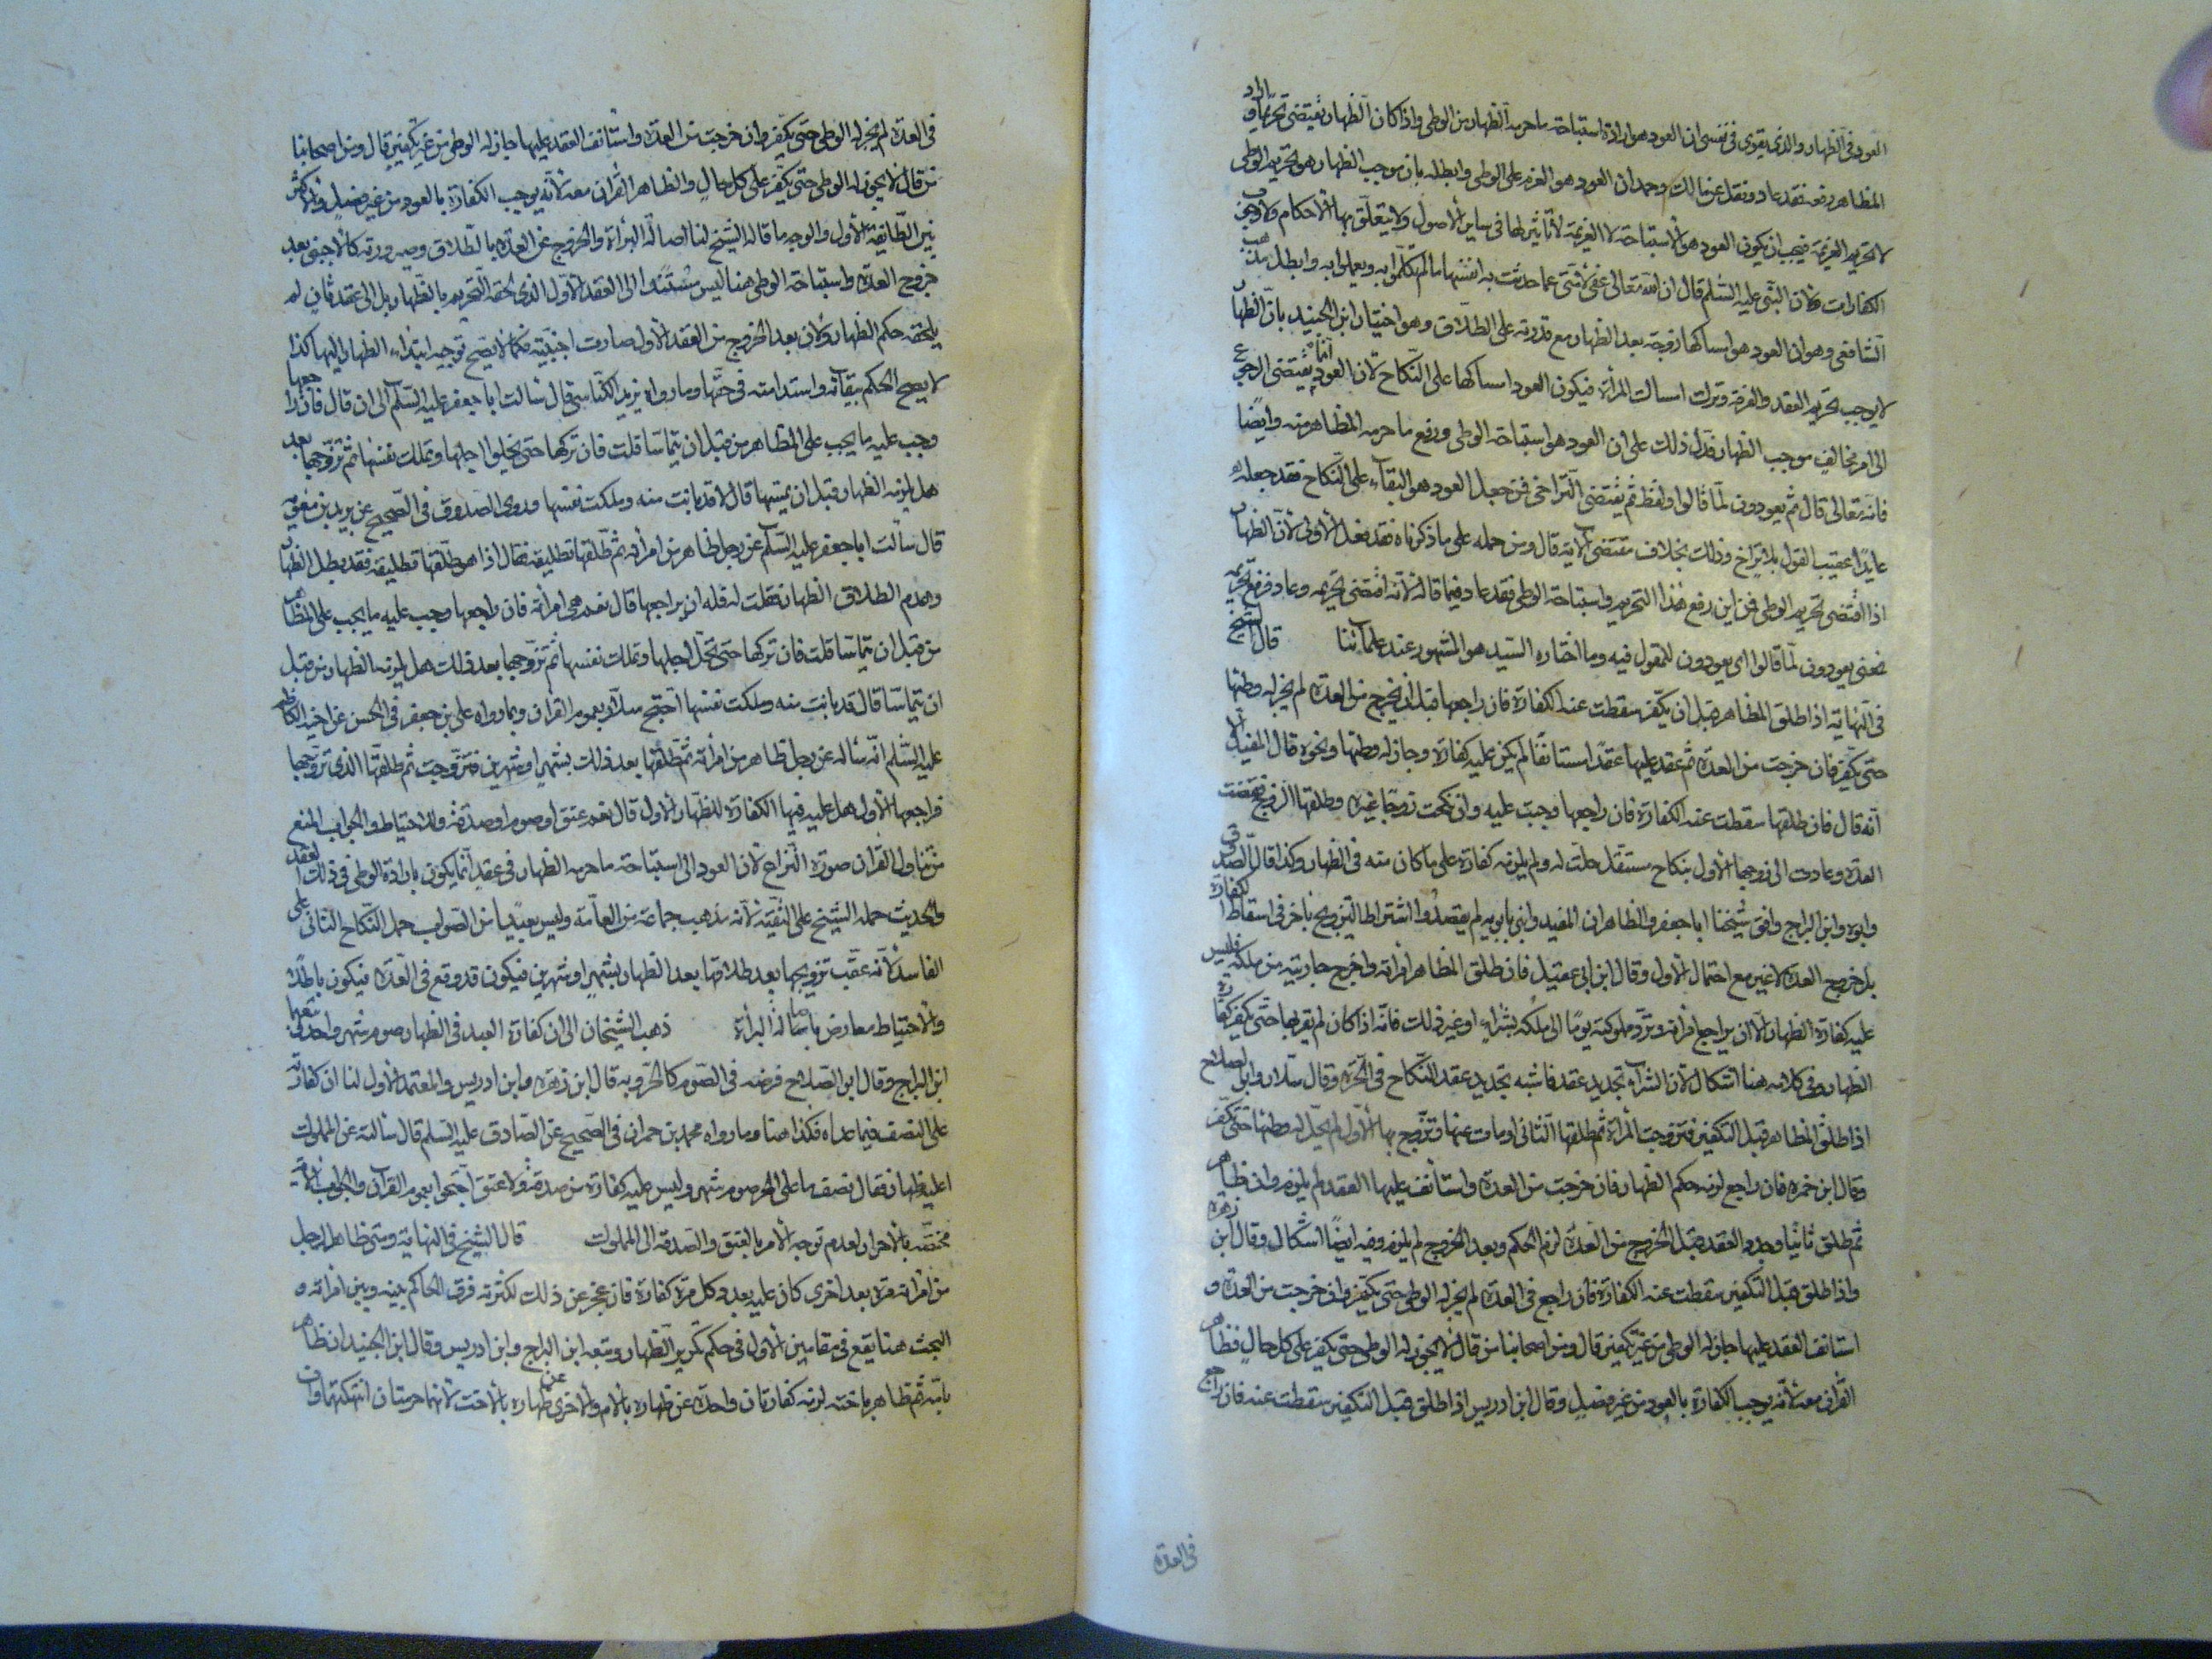 العود فى الظهار والذى يقوى فى نفسى ان العود هو ارادة استباحة ما حرمه الظهار من الوطى واذا كان الظهار يقتضى تحريما واراد
المظاهر رفعه فقد عاد ونقل عن مالك واحمد ان العود هو العزم على الوطى وابطله بان موجب الظهار هو تحريم الوطى
لا تحريم العزيمة فيجب ان يكون العود هو الاستباحة لا العزيمة لا تاثير لها فى ساير الاصول ولا يتعلق بها الاحكام ولا وجوب
الكفارات ولان النبى عليه السلم قال ان الله تعالى عفى لامتى عما حدثت به انفسها ما لم يتكلموا به ويعملوا به وابطل مذهب
الشافعى وهو ان العود هو امساكها زوجة بعد الظهار مع قدرته على الطلاق وهو اختيار ابن الجنيد بان الظهار
لا يوجب تحريم العقد والفرقة وترك امساك المراة فيكون العود امساكها على النكاح لان العود انما يقتضى الرجوع
الى امر مخالف موجب الظهار فدل ذلك على ان العود هو استباحة الوطى ورفع ما حرمه المظاهر منه وايضا
فانه تعالى قال ثم يعودون لما قالوا ولفظ ثم يقتضى التراخى فمن جعل العود هو البقاء على النكاح فقد جعله
عايدا عقيب القول بلا تراخ وذلك بخلاف مقتضى الاية قال ومن حمله على ما ذكرناه فقد فعل الاولى لان الظهار
اذا اقتضى تحريم الوطى فمن اين رفع هذا التحريم واستباحة الوطى فقد عاد فيما قاله لانه اقتضى تحريمه وعاد فرفع تحريمه
فمعنى يعودون لما قالوا اى يعودون للمقول فيه وما اختاره السيد هو المشهور عند علمائنا قال الشيخ
فى النهاية اذا طلق المظاهر قبل ان يكفر سقطت عنه الكفارة فان راجعها قبل ان يخرج من العدة لم يجز له وطئها
حتى يكفر فان خرجت من العدة ثم عقد عليها عقدا مستانفا لم يكن عليه كفارة وجاز له وطئها ونحوه قال المفيد الا
انه قال فان طلقها سقطت عنه الكفارة فان راجعها وجبت عليه وان نكحت زوجا غيره وطلقها الزوج فقضت
العدة وعادت الى زوجها الاول بنكاح مستقبل حلت له ولم يلزمه كفارة على ما كان منه فى الظهار وكذا قال الصدوق
وابوه وابن البراج وافق شيخنا ابا جعفر والظاهر ان المفيد وابنى بابويه لم يقصدوا اشتراط التزويج باخر فى اسقاط الكفارة
بل خروج العدة لا غير مع احتمال الاول وقال ابن ابى عقيل فان طلق المظاهر امراته واخرج جاريته من ملكه فليس
عليه كفارة الظهار الا ان يراجع امراته وترد مملوكته يوما الى ملكه بشراء او غير ذلك فانه اذا كان لم يقربها حتى يكفر كفارة
الظهار وفى كلامه هنا اشكال لان الشراء تجديد عقد فاشبه تجديد عقد النكاح فى الحرة وقال سلار وابو الصلاح
اذا طلق المظاهر قبل التكفير فتزوجت المراة ثم طلقها الثانى او مات عنها وتزوج بها الاول لم يحل له وطئها حتى يكفر
وقال ابن حمزه فان راجع لزمه حكم الظهار فان خرجت من العدة واستانف عليها العقد لم يلزم وان ظاهر
ثم طلق ثانيا وجدد العقد قبل الخروج من العدة لزم الحكم وبعد الخروج لم يلزم وفيه ايضا اشكال وقال ابن زهره
واذا طلق قبل التكفير سقطت عنه الكفارة فان راجع فى العدة لم يجز له الوطى حتى يكفر وان خرجت من العدة و
استانف العقد عليها جاز له الوطى من غير تكفير قال ومن اصحابنا من قال لا يجوز له الوطى حتى يكفر على كل حال فظاهر
القرآن معه لانه يوجب الكفارة بالعود من غير فصل وقال ابن ادريس اذا طلق قبل التكفير سقطت عنه فان راجع
فى العدة
فى العدة لم يجز له الوطى حتى يكفر وان خرجت من العدة واستانف العقد عليها جاز له الوطى من غير تكفير قال ومن اصحابنا
من قال لا يجوز له الوطى حتى يكفر على كل حال والظاهر القرآن معه لانه يوجب الكفارة بالعود من غير فصل والاكثر
بين الطايفة الاول والوجه ما قاله الشيخ لنا اصالة البراة والخروج عن العدة بالطلاق وصيرورته كالاجنبى بعد
خروج العدة واستباحة الوطى هنا ليس مستندا الى العقد الاول الذى لحقه التحريم بالظهار بل الى عقد ثان لم
يلحقه حكم الظهار ولان بعد الخروج من العقد الاول صارت اجنبية فكما لا يصح توجيه ابتداء الظهار اليها كذا
لا يصح الحكم ببقائه واستدامته فى حقها وما رواه يزيد الكناسى قال سالت ابا جعفر عليه السلم الى ان قال فان راجعها
وجب عليه ما يجب على المظاهر من قبل ان يتماسا قلت فان تركها حتى يخلوا اجلها وتملك نفسها ثم تزوجها بعد
هل يلزمه الظهار قبل ان يمسها قال لا قد بانت منه وملكت نفسها وروى الصدوق فى الصحيح عن بريد بن معوية
قال سالت ابا جعفر عليه السلم عن رجل ظاهر من امراته ثم طلقها تطليقة فقال اذا هو طلقها تطليقة فقد بطل الظهار
وهدم الطلاق الظهار فقلت له فله ان يراجعها قال نعم هى امراته فان راجعها وجب عليه ما يجب على المظاهر
من قبل ان يتماسا قلت فان تركها حتى تحل اجلها وتملك نفسها ثم تزوجها بعد ذلك هل يلزمه الظهار من قبل
ان يتماسا قال قد بانت منه وملكت نفسها احتج سلار بعموم القرآن وبما رواه على بن جعفر فى الحسن عن اخيه الكاظم
عليه السلم انه ساله عن رجل ظاهر من امراته ثم طلقها بعد ذلك بشهر او شهرين فتزوجت ثم طلقها الذى تزوجها
فراجعها الاول هل عليه فيها الكفارة للظهار الاول قال نعم عتق او صوم او صدقة وللاحتياط والجواب المنع
من تناول القرآن صورة النزاع لان العود الى استباحة ما حرمه الظهار فى عقد انما يكون بارادة الوطى فى ذلك العقد
والحديث حمله الشيخ على التقية لانه مذهب جماعة من العامة وليس بعيدا من الصواب حمل النكاح الثانى على
الفاسد لانه عقب تزويجها بعد طلاقها بعد الظهار بشهر او شهرين فيكون قد وقع فى العدة فيكون باطلا
والاحتياط معارض باصالة البراة ذهب الشيخان الى ان كفارة العبد فى الظهار صوم شهر واحد تبعهما
ابن البراج وقال ابن الصلاح فرضه فى الصوم كالحر وبه قال ابن زهره وابن ادريس والمعتمد الاول لنا ان كفارته
على النصف فيما عداه فكذا هنا وما رواه محمد بن حمران فى الصحيح عن الصادق عليه السلم قال سالته عن المملوك
اعليه ظهار فقال نصف ما على الحر صوم شهر وليس عليه كفارة من صدقة ولا عتق احتجوا بعموم القرآن والجواب الاية
مختصة بالاحرار لعدم توجه الامر بالعتق والصدقة الى المملوك قال الشيخ فى النهاية ومتى ظاهر الرجل
من امراته مرة بعد اخرى كان عليه بعدد كل مرة كفارة فان عجز عن ذلك لكثرته فرق الحاكم بينه وبين امراته و
البحث هنا يقع فى مقامين الاول فى حكم تكرير الظهار وتبعه ابن البراج وابن ادريس وقال ابن الجنيد ان ظاهر
بامه ثم ظاهر باخته لزمه كفارتان واحدة عن ظهاره بالام والاخرى عن ظهاره بالاخت لانهما حرمتان انتهكتهما وان